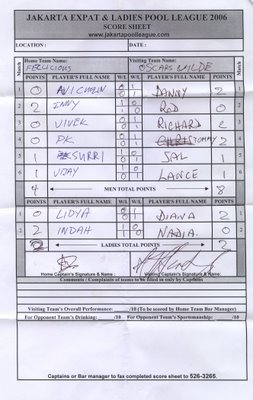 JAKARTA EXPAT & LADIES POOL LEAGUE 2006
SCORE SHEET
www.jakartapoolleague.com
LOCATION : DATE :
Match Home Team Name: Visiting Team Name: Match
FELICIOUS OSCARS WILDE
POINTS PLAYER'S FULL NAME W/L W/L PLAYER'S FULL NAME POINTS
1 0 AVICHUN 0 1 DANNY 2 1
2 2 INNY 1 0 ROD 0 2
3 0 VIVEK 0 1 RICHARD 2 3
4 0 PK 0 1 TOMMY 2 4
5 1 SURRI SAL 1 5
6 1 VIJAY LANCE 1 6
4 MEN TOTAL POINTS 8
POINTS PLAYER'S FULL NAME W/L W/L PLAYER'S FULL NAME POINTS
1 0 LIDYA 0 1 DIANA 2 1
2 2 INDAH 1 0 NADIA. 0 2
2 LADIES TOTAL POINTS 2
Home Captain's Signature & Name : Visiting Captain's Signature & Name:
Comments / Complaints of teams to be filled in only by Captains
Visiting Team's Overall Performance: /10 (To be scored by Home Team Bar Manager)
For Opponent Team's Drinking: /10 For Opponent Team's Sportsmanship: /10
Captains or Bar manager to fax completed score sheet to 526-3265.